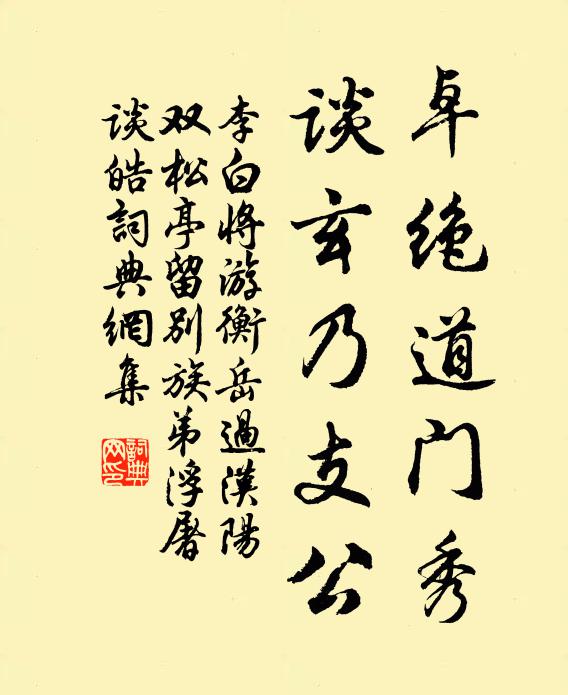 卓绝道门秀
谈玄乃支公
李白将游衡岳過漢陽
双松亭留别族弟浮屠
谈皓詞典網集
詞典
网印